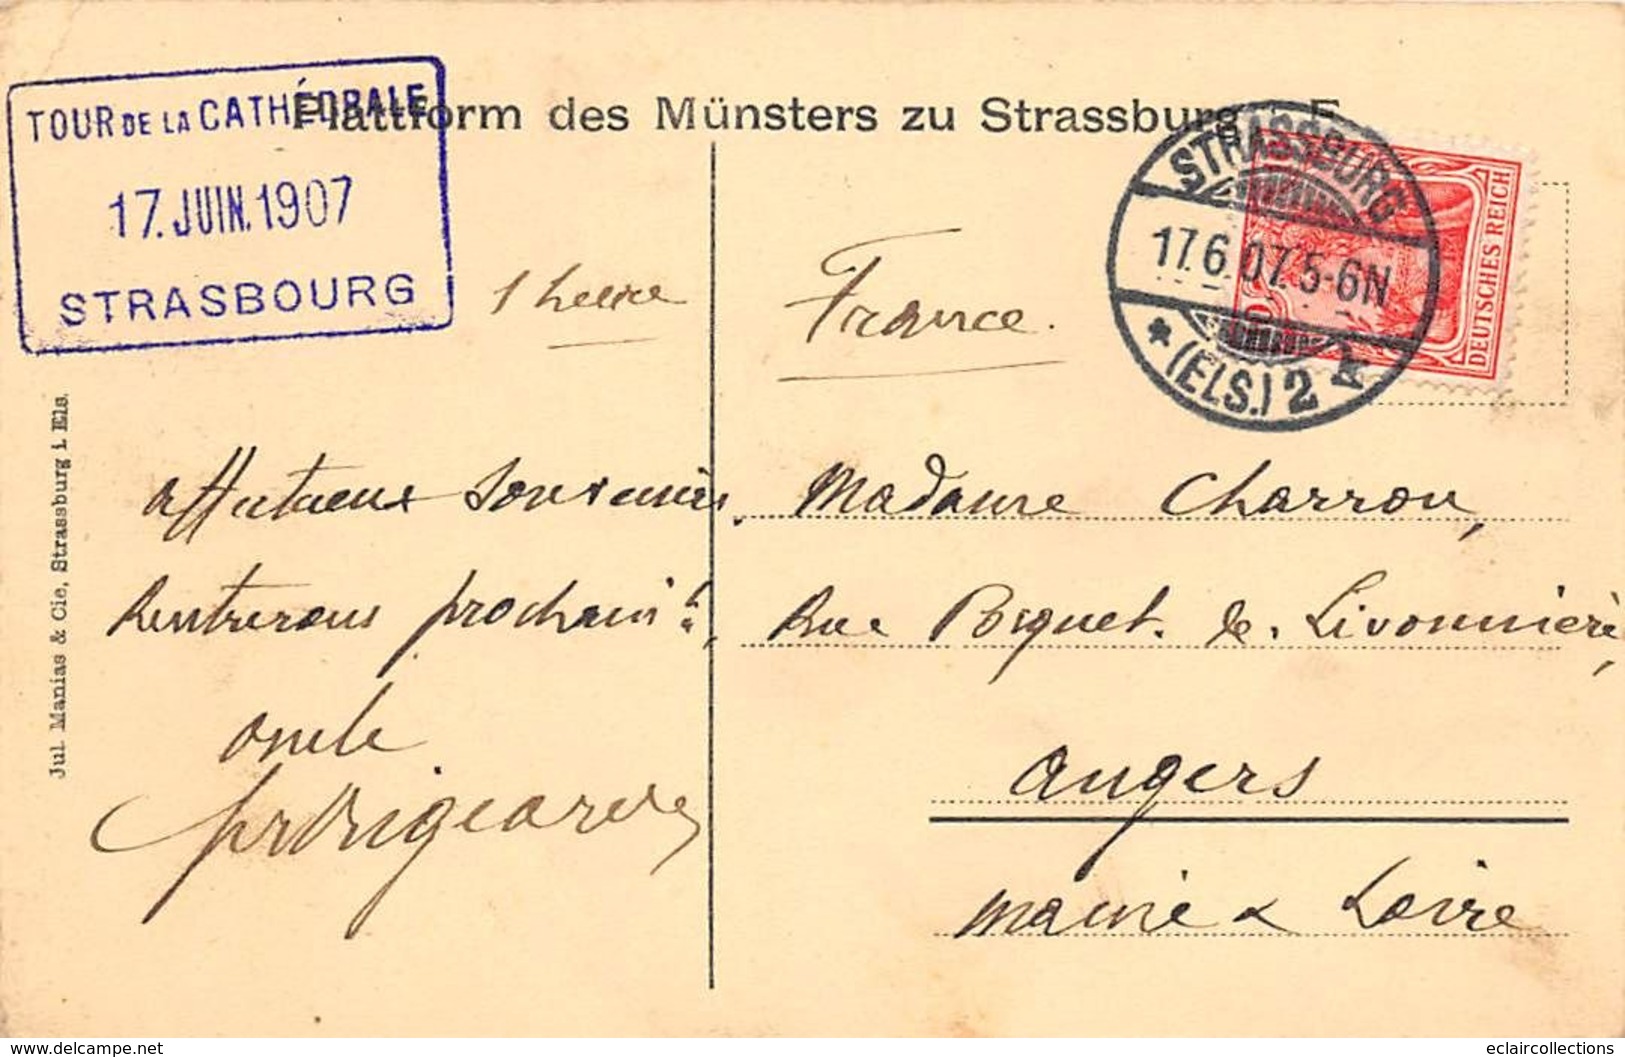 Plattform des Münsters zu Strassburg i. E.
TOUR DE LA CATHÉDRALE
17. JUIN. 1907
STRASBOURG
STRASSBURG
17.6.07. 5-6N
* (ELS.) 2 k
DEUTSCHES REICH
1 heure
France.
affectueux souvenirs.
Rentrerons prochain.t,
oncle
Madame Charron,
Rue Bosquet. de. Livonnière,
Angers
Maine & Loire
Jul. Manias & Cie, Strassburg i. Els.
delcampe.net
eclaircollections